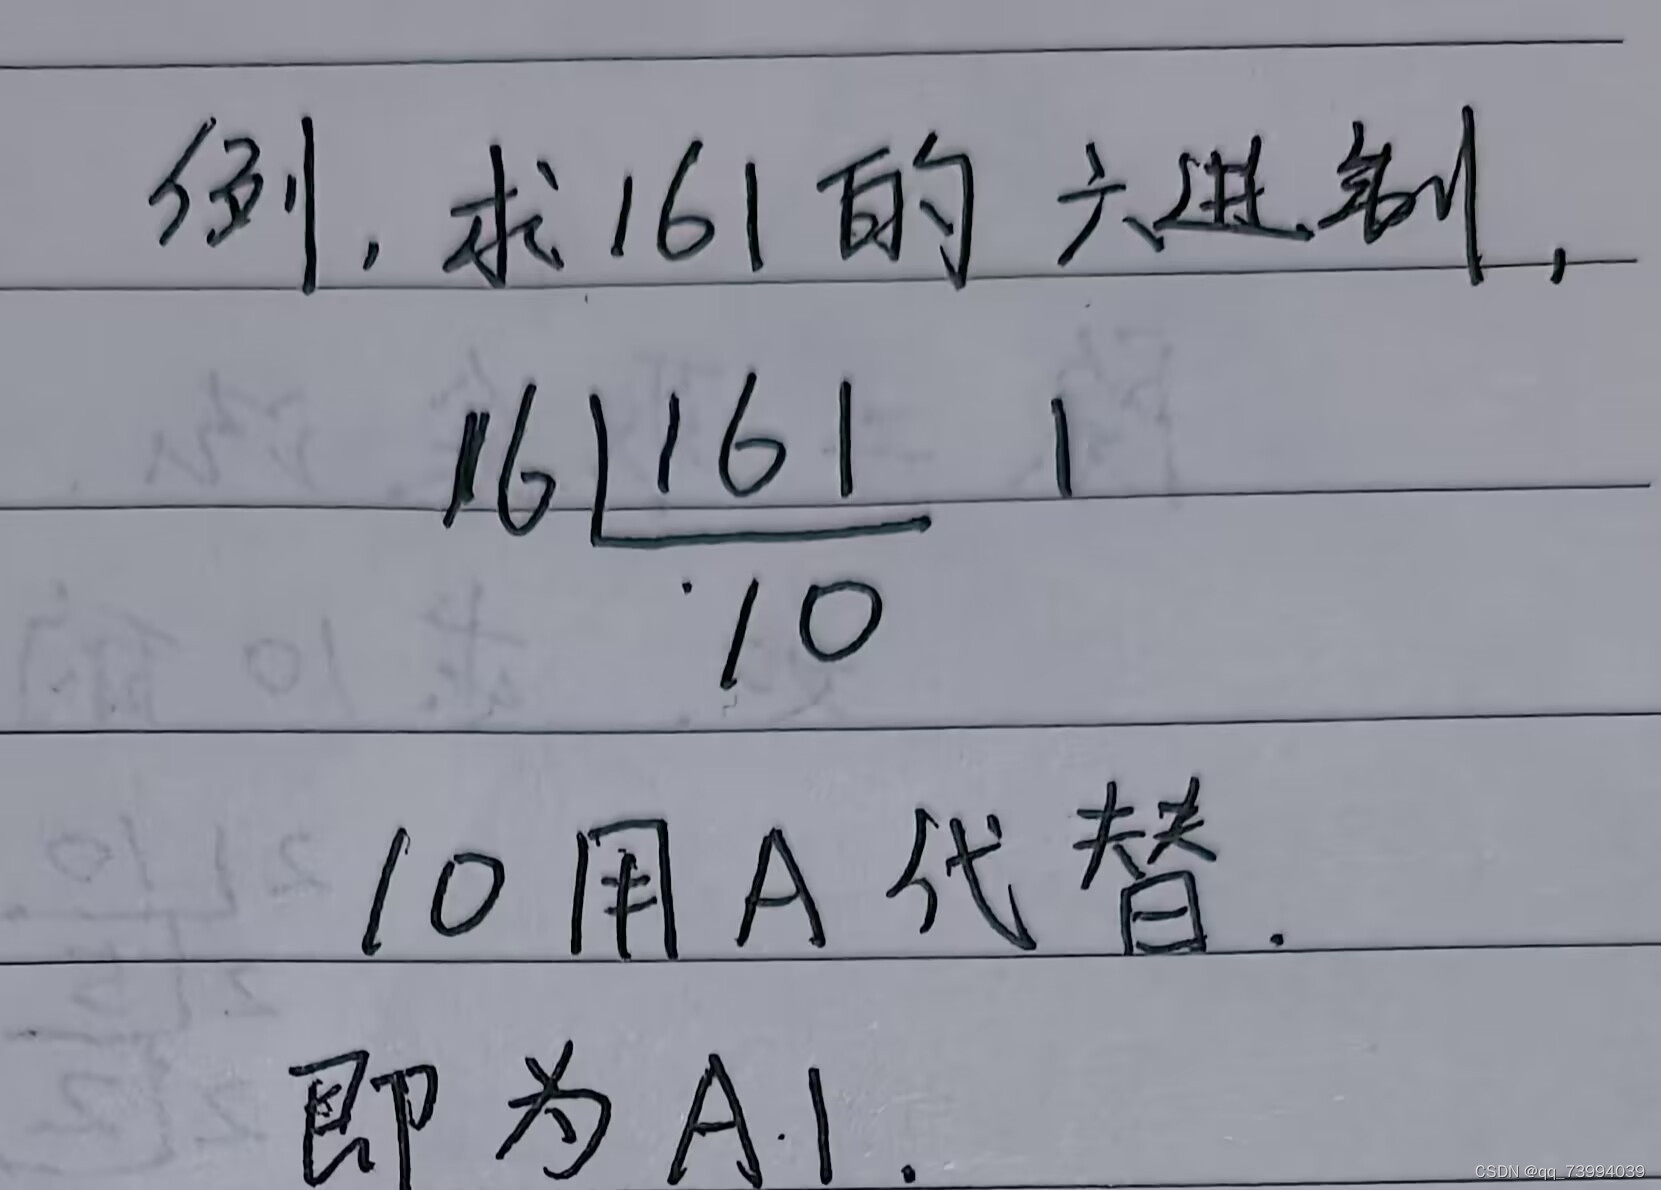 例，求161的六进制，
16 161 1
10
10用A代替.
即为A1.
CSDN @qq_73994039